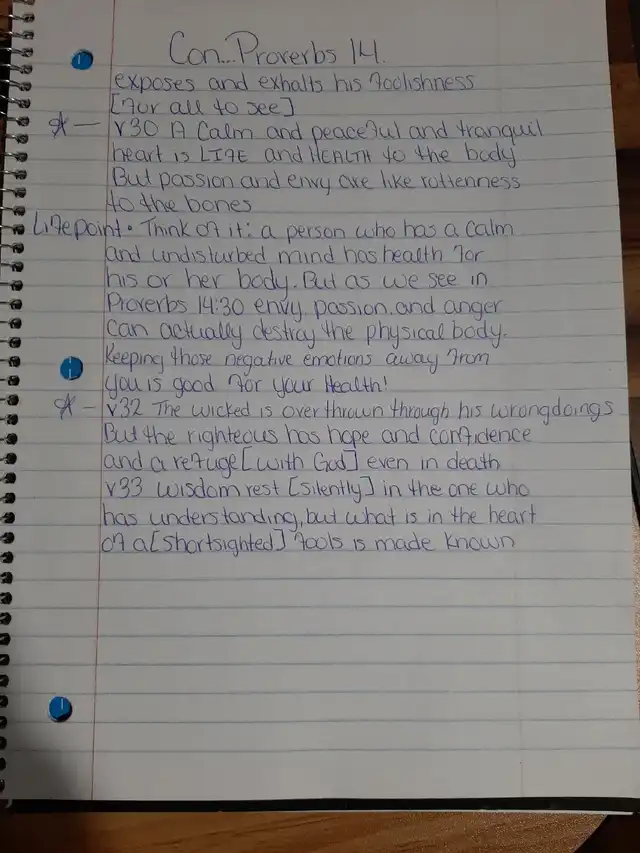 Con...Proverbs 14.
exposes and exhalts his foolishness
[for all to see]
☆— v30 A Calm and peaceful and tranquil
heart is LIFE and HEALTH to the body
But passion and envy are like rottenness
to the bones
Lifepoint • Think of it: a person who has a calm
and undisturbed mind has health for
his or her body. But as we see in
Proverbs 14:30 envy, passion, and anger
can actually destroy the physical body.
Keeping those negative emotions away from
you is good for your Health!
☆— v32 The wicked is overthrown through his wrongdoings
But the righteous has hope and confidence
and a refuge [with God] even in death
v33 wisdom rest [silently] in the one who
has understanding, but what is in the heart
of a [shortsighted] fools is made known